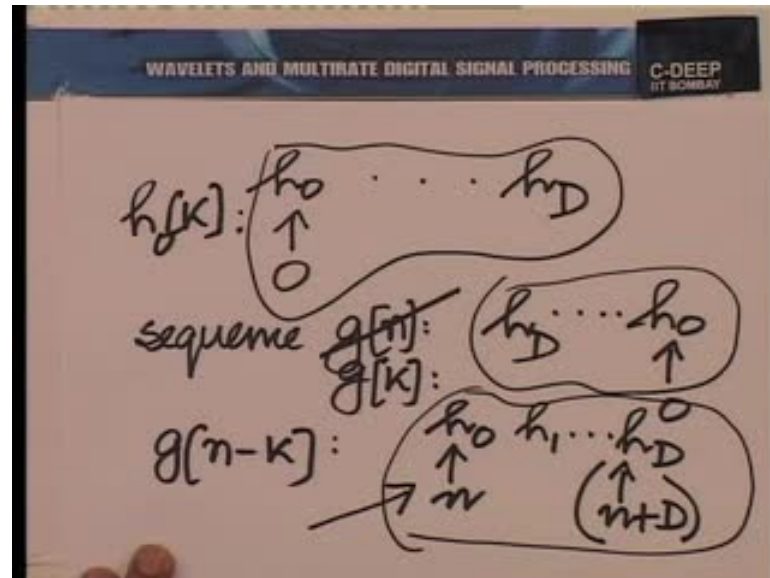 WAVELETS AND MULTIRATE DIGITAL SIGNAL PROCESSING
C-DEEP
IIT BOMBAY
h₀[k]: h₀ . . . h_D
↑
0
sequence g[n]: h_D .... h₀
g[k]: ↑
0
g[n-k]: h₀ h₁ ... h_D
↑ ↑
n (n+D)